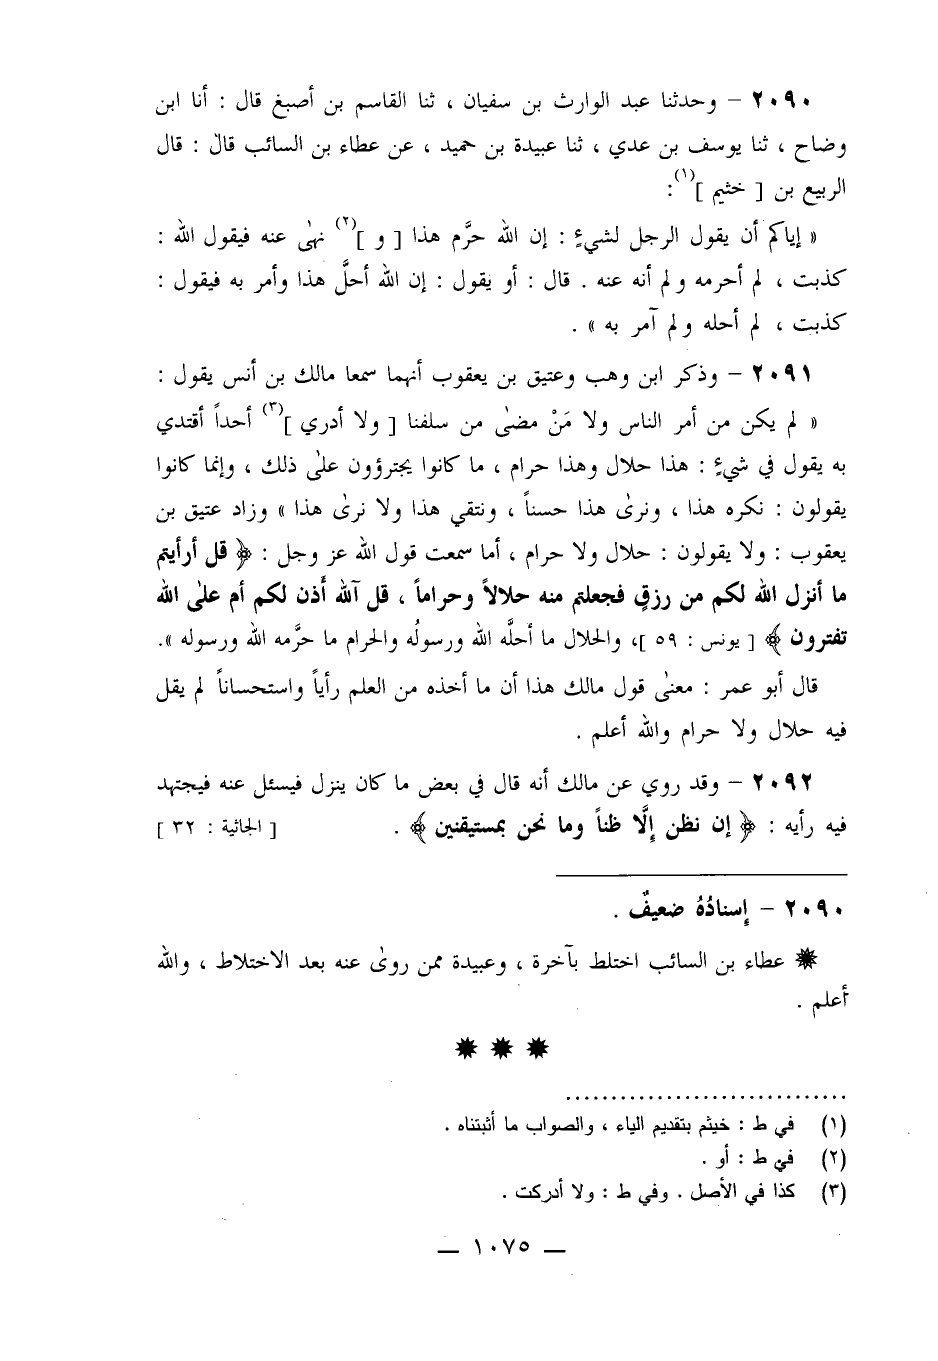 ٢٠٩٠ – وحدثنا عبد الوارث بن سفيان ، ثنا القاسم بن أصبغ قال : أنا ابن
وضاح ، ثنا يوسف بن عدي ، ثنا عبيدة بن حميد ، عن عطاء بن السائب قال : قال
الربيع بن [ خثيم ](١):
« إياكم أن يقول الرجل لشيءٍ : إن الله حرَّم هذا [ و ](٢) نهىٰ عنه فيقول الله :
كذبت ، لم أحرمه ولم أنه عنه . قال : أو يقول : إن الله أحلَّ هذا وأمر به فيقول :
كذبت ، لم أحله ولم آمر به » .
٢٠٩١ – وذكر ابن وهب وعتيق بن يعقوب أنهما سمعا مالك بن أنس يقول :
« لم يكن من أمر الناس ولا مَنْ مضىٰ من سلفنا [ ولا أدري ](٣) أحداً أقتدي
به يقول في شيءٍ : هذا حلال وهذا حرام ، ما كانوا يجترؤون علىٰ ذلك ، وإنما كانوا
يقولون : نكره هذا ، ونرىٰ هذا حسناً ، ونتقي هذا ولا نرىٰ هذا » وزاد عتيق بن
يعقوب : ولا يقولون : حلال ولا حرام ، أما سمعت قول الله عز وجل : ﴿ قل أرأيتم
ما أنزل الله لكم من رزقٍ فجعلتم منه حلالاً وحراماً ، قل آلله أذن لكم أم علىٰ الله
تفترون ﴾ [ يونس : ٥٩ ]، والحلال ما أحلَّه الله ورسولُه والحرام ما حرَّمه الله ورسوله ».
قال أبو عمر : معنىٰ قول مالك هذا أن ما أخذه من العلم رأياً واستحساناً لم يقل
فيه حلال ولا حرام والله أعلم .
٢٠٩٢ – وقد روي عن مالك أنه قال في بعض ما كان ينزل فيسئل عنه فيجتهد
فيه رأيه : ﴿ إن نظن إلَّا ظناً وما نحن بمستيقنين ﴾ . [ الجاثية : ٣٢ ]
٢٠٩٠ – إسنادُهُ ضعيفٌ .
✸ عطاء بن السائب اختلط بآخرة ، وعبيدة ممن روىٰ عنه بعد الاختلاط ، والله
أعلم .
✸ ✸ ✸
(١) في ط : خيثم بتقديم الياء ، والصواب ما أثبتناه .
(٢) في ط : أو .
(٣) كذا في الأصل . وفي ط : ولا أدركت .
— ١٠٧٥ —